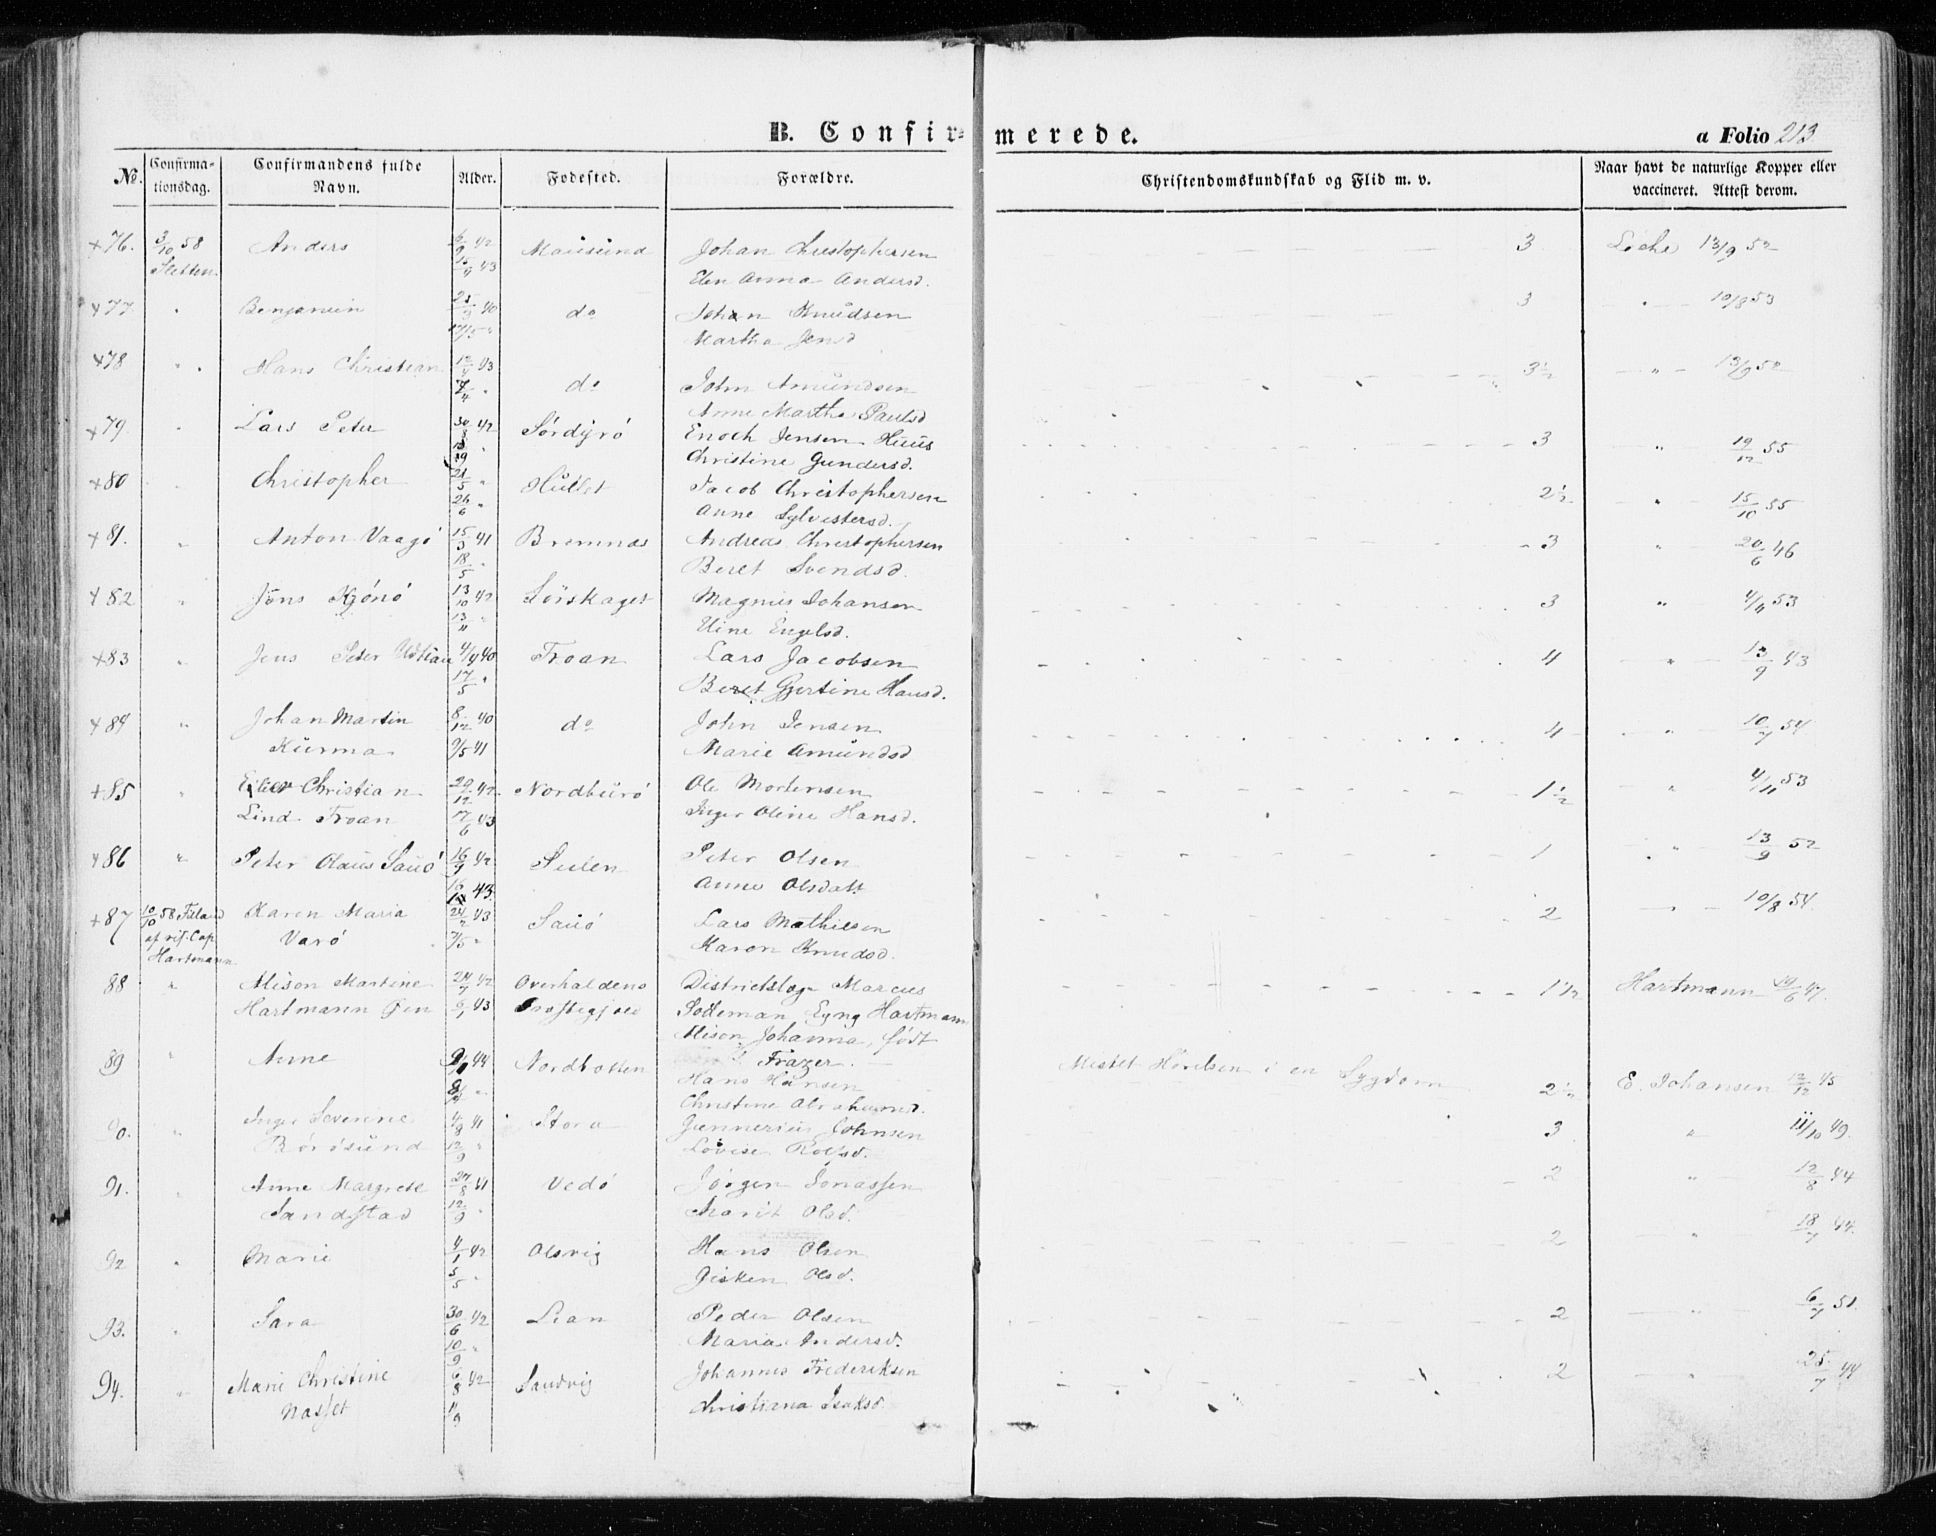 B. Confirmerede. a Folio 213
№. Confirmationsdag. Confirmandens fulde Navn. Alder. Fødested. Forældre. Christendomskundskab og Flid m. v. Naar havt de naturlige Kopper eller vaccineret. Attest derom.
+76. 3/10 58 Anders 6/9 42 Mausund Johan Christophersen 3 13/9 52
Sletten 43 Elen Anna Andersd.
+77 " Benjamin 40 do Johan Knudsen 3 " 10/8 53
17/5 " Martha Jensd
+78 " Hans Christian 43 do John Amundsen 3½ " 13/9 52
Anne Martha Paulsd
+79. " Lars Peter 30 42 Sørdyrö Enoch Jensen Huus 3 " 19/12 55
Christine Gundersd.
+80 " Christopher 21/5 " Hullet Jacob Christophersen 2½ " 15/10 55
26/6 " Anne Sylvestersd.
+81. " Anton Vaagö 15/3 41 Bremnæs Andreas Christophersen 3 " 20/6 46
18/5 " Beret Svendsd.
+82 " Jöns Kjönö 13/10 42 Magnus Johansen 3 " 4/11 53
13/11 " Eline Engelsd.
+83 " Jens Peter 40 Froan Lars Jacobsen 4 " 13/9 43
17/5 " Beret Gjertine Hansd.
+84 " Johan Martin 8/12 40 do John Jensen 4 " 10/7 54
Kurma 9/5 41 Marie Amundsd
+85 " Christian 29/12 42 Nordburö Ole Mortensen 1½ " 4/11 53
Lind Froan 17/6 43 Inger Oline Hansd.
+86 " Peter Olaus Sauö 16/9 42 Sulen Peter Olsen 1 " 13/9 52
43 Anne Olsdatt
+87 10/10 58 Fillan Karen Maria 24/2 43 Sauö Lars Mathiesen 2 " 10/8 54.
af res. Cap. Varö 7/5 " Karen Knudsd.
Hartmann
88 " Alison Martine 24/7 42 Overhaldens Districtslæge Marcus 1½ Hartmann 19/6 47.
Hartmann 6/1 43 Præstegjeld Hartmann
Alison Johanna, født
Frazer.
89 " Anne 44 Nordbotten Hans Hansen Mistet Hørelsen i en Sygdom 2½ E. Johansen 12/12 45
Christine Abrahamsd.
90. " Inger Severine 4/8 41 Stora Gunnerius Johnsen 3 " 11/10 49.
Börösund 12/9 " Lovise Rolfsd.
91. " Anne Margrete 27/8 41 Vedö Jörgen Jonassen 2 " 12/8 44
Sandstad 12/9 " Marit Olsd.
92 " Marie 4/1 42 Olsvig Hans Olsen 2 " 18/7 44.
5/5 " Gisken Olsd.
93. " Sara 30/6 42 Lian Peder Olsen 2 " 6/7 51.
10/9 " Maria Andersd.
94. " Marie Christine 6/8 42 Sandvig Johannes Frederiksen 2 " 25/7 44
Nasset 11/9 Christiana Isaksd.